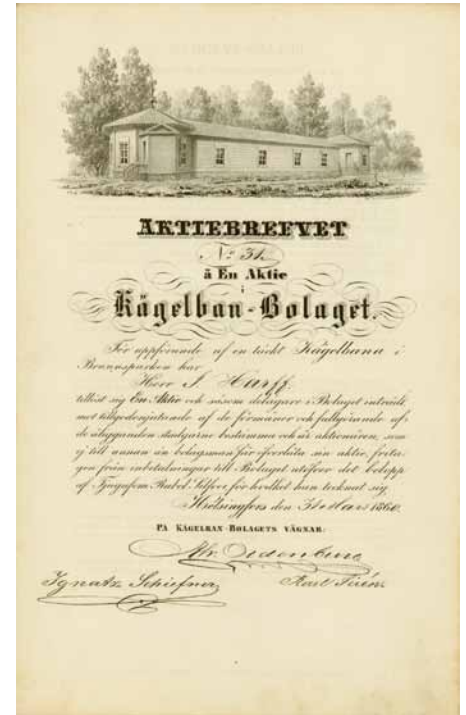 AKTIEBREFVET
No 31.
à En Aktie
i
Kägelban-Bolaget.
För uppförande af en täckt Kägelbana i
Brunnsparken har
Herr J. Harff
tillöst sig En Aktie och såsom delägare i Bolaget inträdt
mot tillgodonjutande af de förmåner och fullgörande af
de åligganden stadgarne bestämma och är aktionären, som
ej till annan än bolagsman får öfverlåta sin aktie, frita-
gen från inbetalningar till Bolaget utöfver det belopp
af Tjugufem Rubel Silfver för hvilket han tecknat sig.
Helsingfors den 31 Mars 1860.
PÅ KÄGELBAN-BOLAGETS VÄGNAR:
Ignatz Schiefner